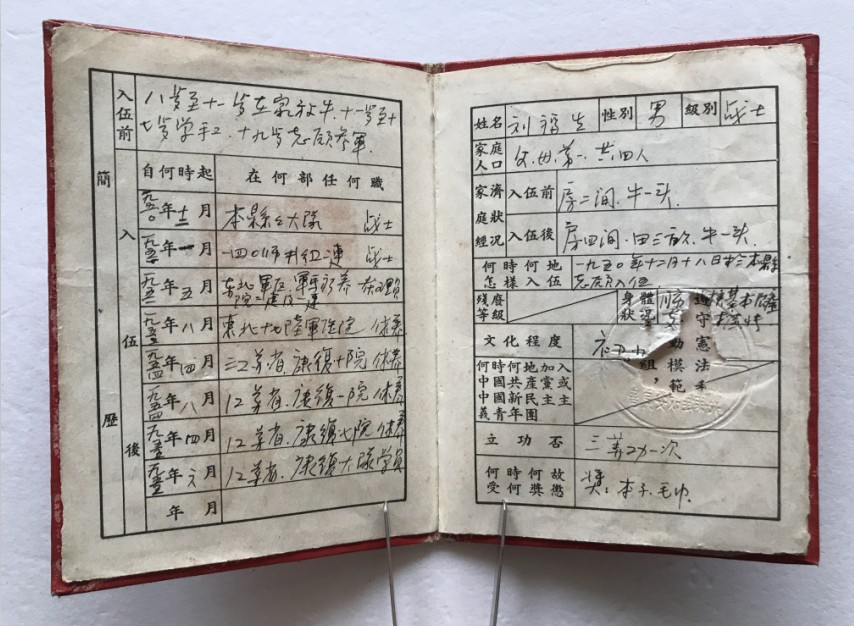 入伍前
八岁至十一岁在家放牛.十一岁至十
七岁学手工.十九岁志愿参軍.
簡歷
入伍後
自何時起 在何部任何職
一九五〇年十二月 本縣大隊 战士
年一月 战士
一九五 年五月 东北軍区
一九五 年八月 東北十七陸軍医院 休养
一九五四年四月 江苏省.康復十院 休养
一九五四年八月 江苏省.康復一院 休养
一九五五年四月 江苏省.康復七院 休养
一九五五年元月 江苏省.康復大隊学員
年 月
姓名 刘福生 性別 男 級別 战士
家庭人口 父.母.弟.共四人
家庭經濟狀况
入伍前 房二间.牛一头.
入伍後 房四间.田三 .牛一头.
何時何地怎樣入伍 一九五〇年十二月十八日 本縣
志愿入伍
殘廢等級
身體狀
守憲法
模範
組，
文化程度 初
何時何地加入
中國共產黨或
中國新民主主
義青年團
立功否 三等功一次
何時何故受何獎懲 獎：本子.毛巾.